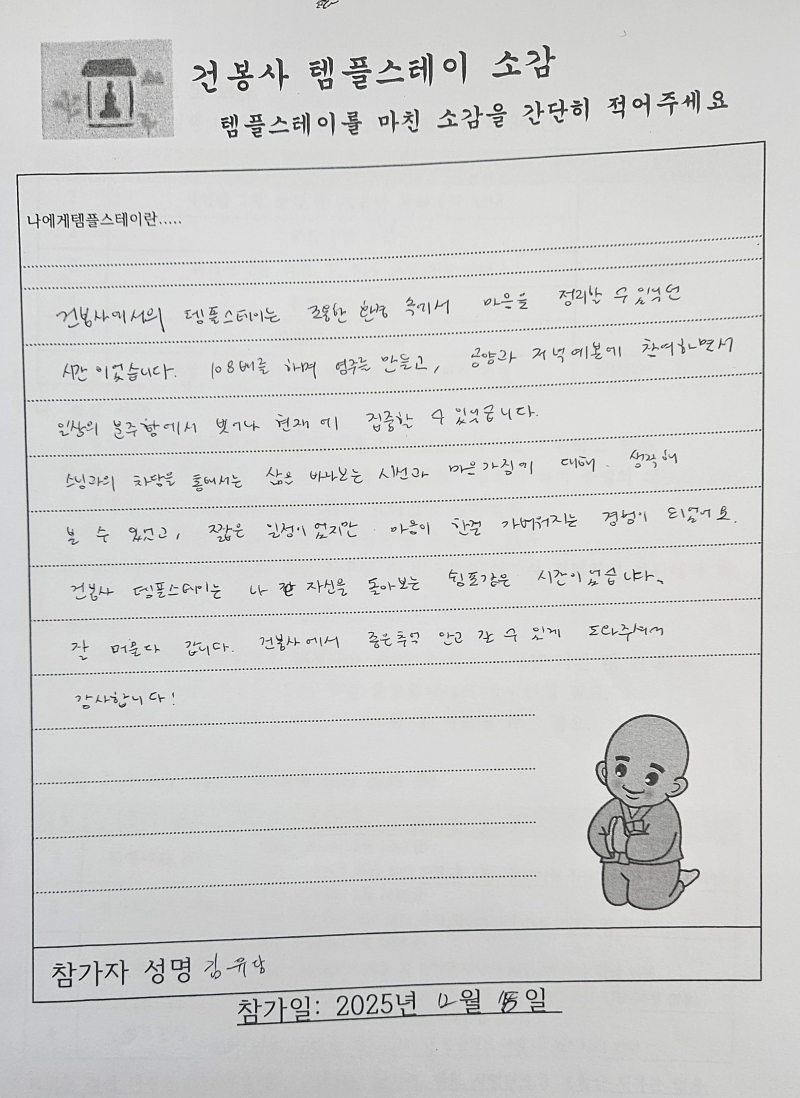 건봉사 템플스테이 소감
템플스테이를 마친 소감을 간단히 적어주세요
나에게템플스테이란.....
건봉사에서의 템플스테이는 조용한 환경 속에서 마음을 정리할 수 있었던
시간이었습니다. 108배를 하며 염주를 만들고, 공양과 저녁예불에 참여하면서
일상의 분주함에서 벗어나 현재에 집중할 수 있었습니다.
스님과의 차담을 통해서는 삶을 바라보는 시선과 마음가짐에 대해 생각해
볼 수 있었고, 짧은 일정이었지만 마음이 한결 가벼워지는 경험이 되었어요.
건봉사 템플스테이는 나 자신을 돌아보는 쉼표같은 시간이었습니다.
잘 머물다 갑니다. 건봉사에서 좋은추억 안고 갈 수 있게 도와주셔서
감사합니다!
참가자 성명 김유
참가일: 2025년 12월 일